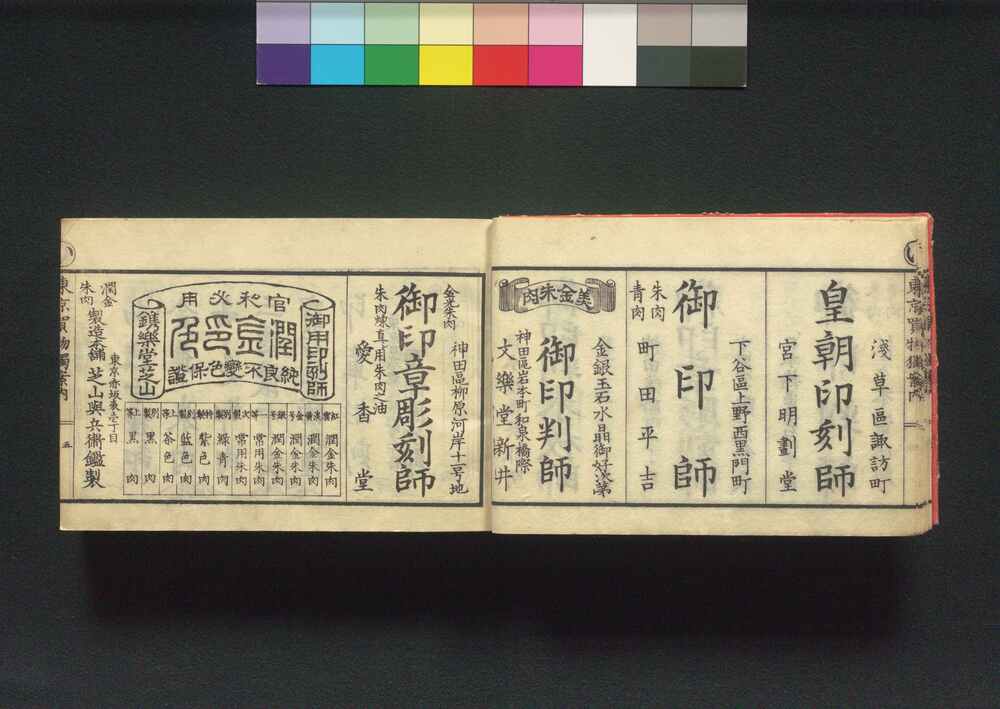 淺草區諏訪町
皇朝印刻師
宮下明劃堂
下谷區上野西黒門町
御印師
朱肉
青肉
町田平吉
美金朱肉
金銀玉石水晶御好次第
御印判師
神田區岩本町和泉橋際
文樂堂新井
神田區柳原河岸十一号地
御印章彫刻師
朱肉煉直シ用朱肉之油
愛香堂
御用印刻師
官私必用
潤
印色
純良不變色保證
鐫樂堂芝山
潤金朱肉
潤金朱肉
潤金朱肉
常用朱肉
常用朱肉
緑青肉
紫色肉
藍色肉
茶色肉
黒肉
黒肉
潤金
朱肉
製造本舗
東京赤坂表三丁目
芝山與兵衛鑑製
東京買物獨案内
五